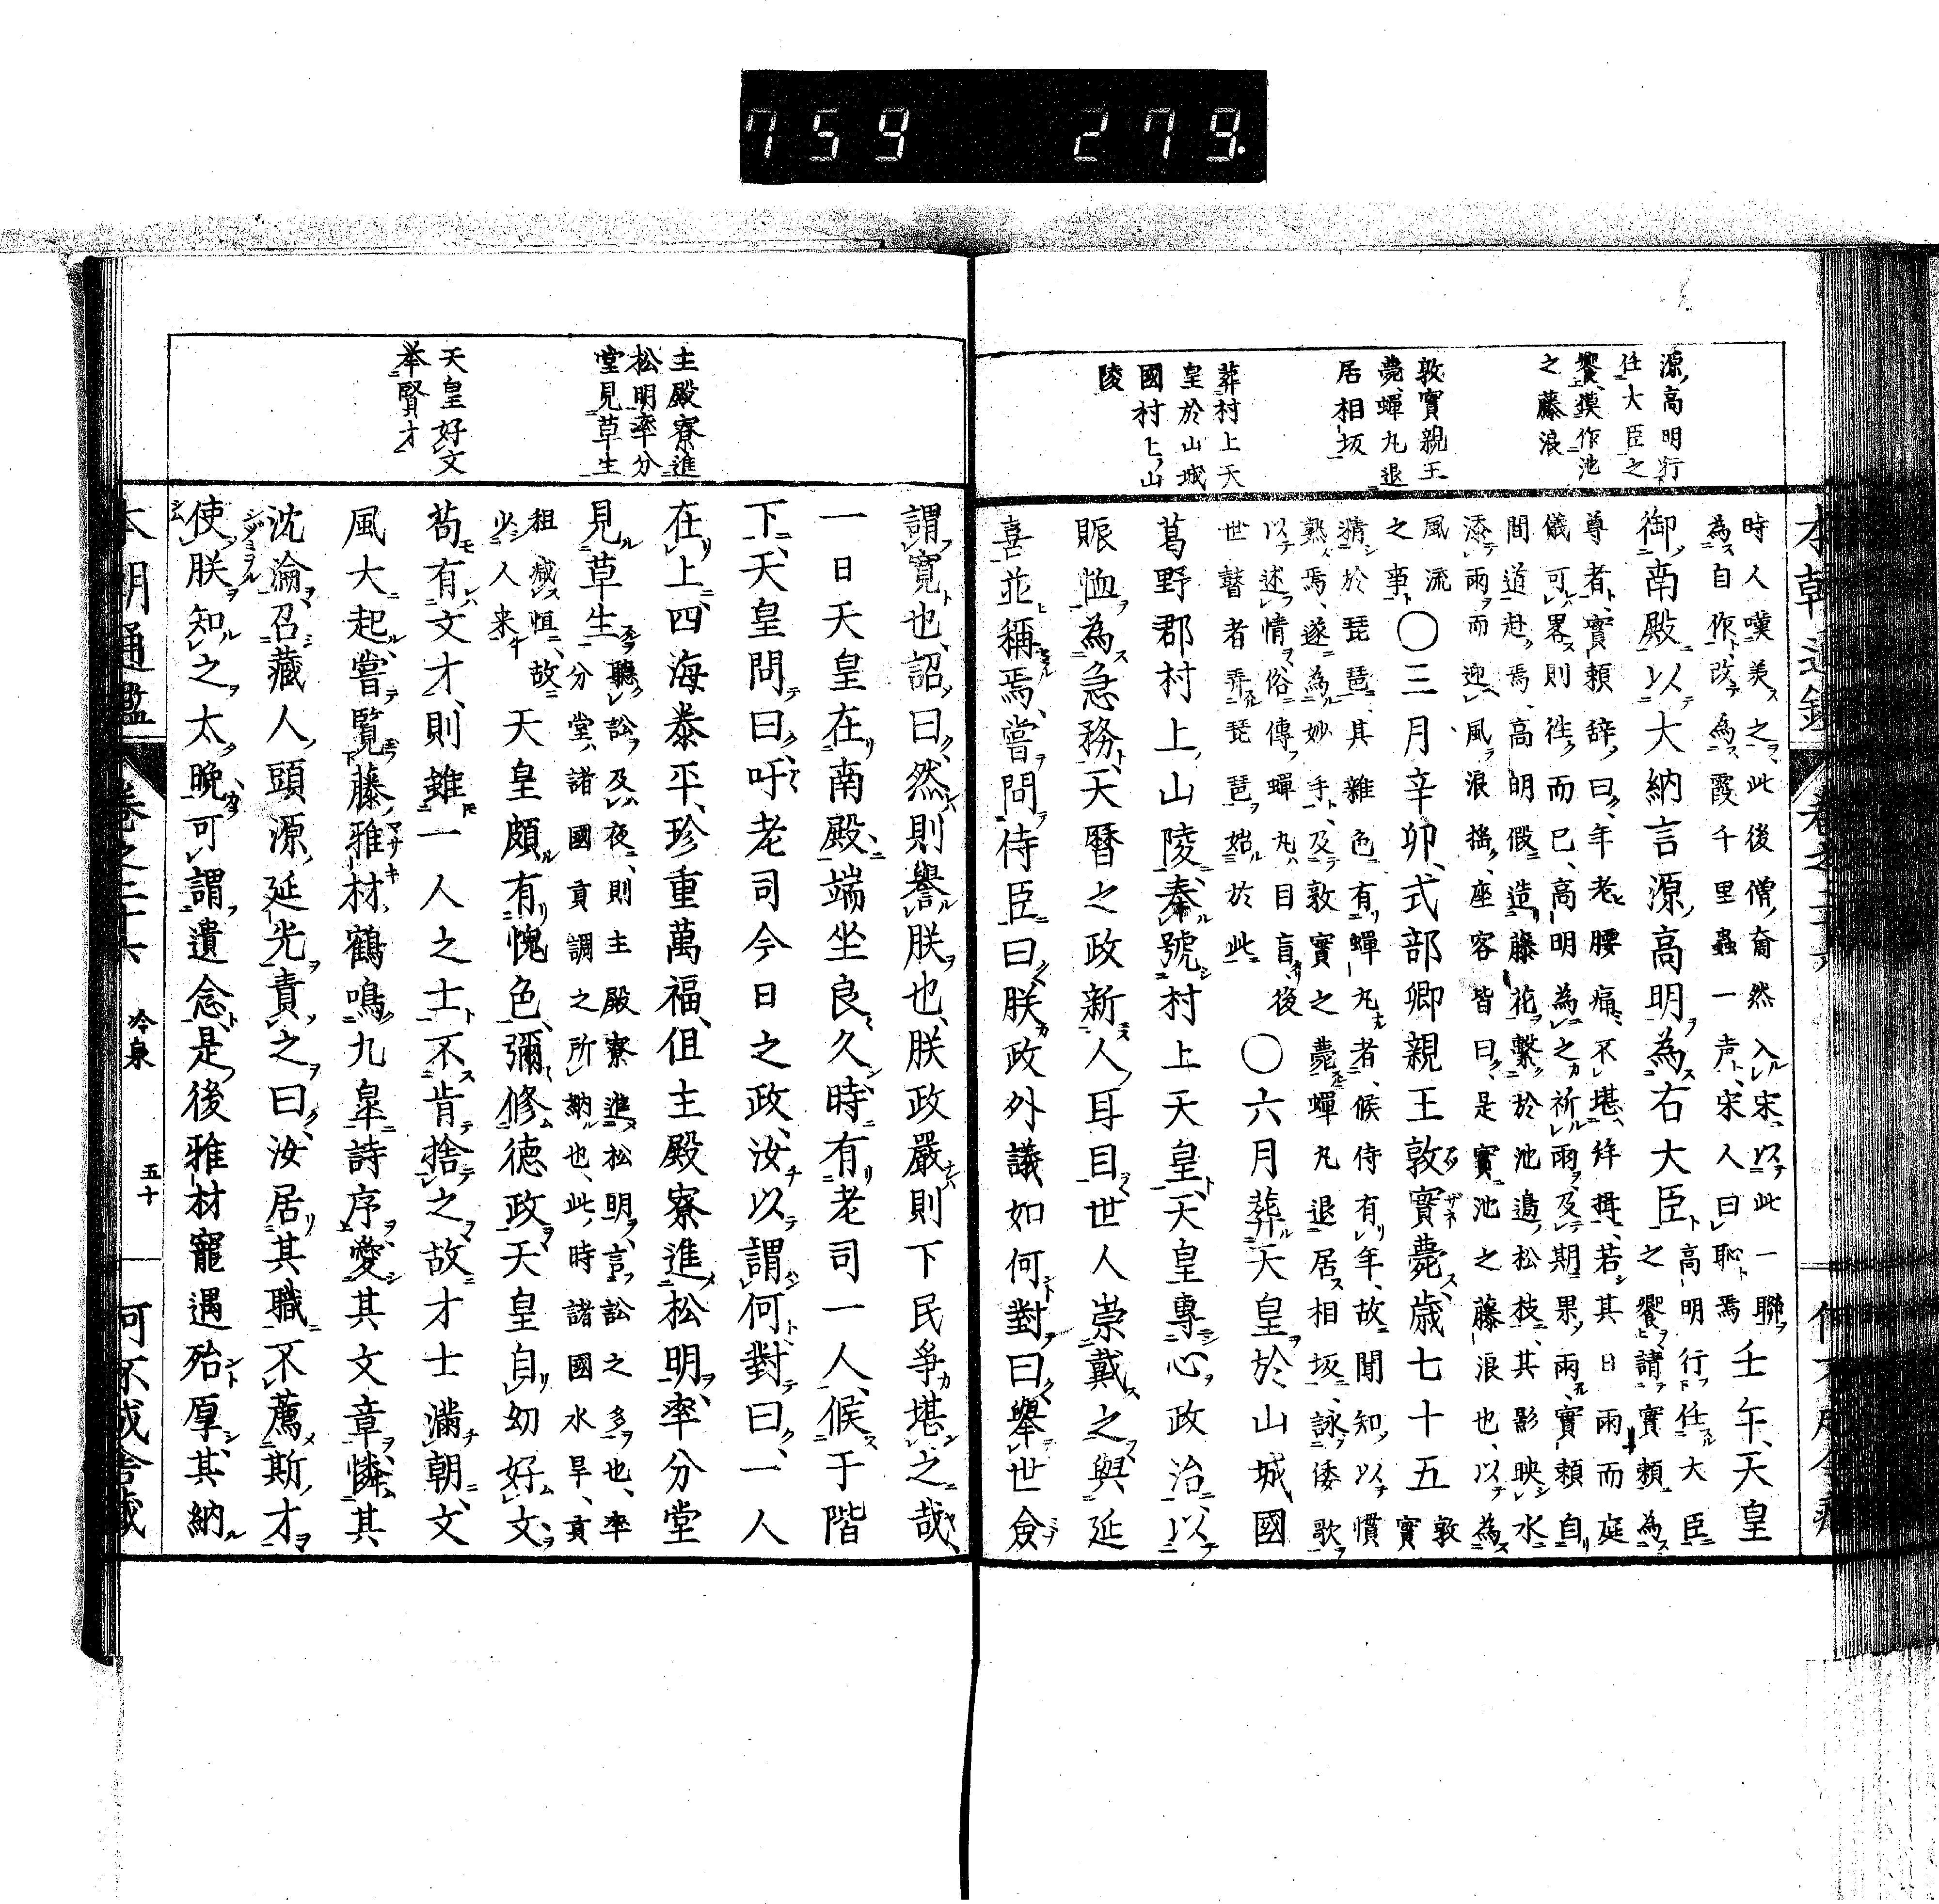 759 279.
源高明行
任大臣之
饗、摸作池
之藤浪
敦實親王
薨、蟬丸退
居相坂
葬村上天
皇於山城
國村上山
陵
時人嘆美之、此後僧奝然入宋、以此一聯
為自作、改為霞千里蟲一声、宋人曰恥焉
壬午、天皇
御南殿以大納言源高明為右大臣
高明行任大臣
之饗請實賴為
尊者、實賴辞曰、年老腰痛、不堪、拝揖、若其日雨而庭
儀可畧則徃而已、高明為之祈雨、及期果雨、實賴自
間道赴焉、高明假造藤花繫於池邉松枝、其影映水
添雨而迎風浪揺、座容皆曰、是實池之藤浪也、以為
風流
之事
〇三月辛卯、式部卿親王敦實薨歳七十五
敦
實
精於琵琶其雜色有蟬丸者、候侍有年、故聞知以慣
熟焉、遂為妙手、及敦實之薨蟬丸退居相坂、詠倭歌
以述情俗傳蟬丸目盲、後
世瞽者弄琵琶始於此
〇六月葬天皇於山城國
葛野郡村上山陵、奉號村上天皇、天皇專心政治、以
賑恤為急務、天暦之政新人耳目世人崇戴之與延
喜並稱焉、嘗問侍臣曰朕政外議如何對曰舉世僉
主殿寮進
松明率分
堂見草生
天皇好文
举賢才
謂寛也、詔曰、然則譽朕也、朕政嚴則下民爭堪之哉、
一日天皇在南殿端坐良久時有老司一人候于階
下、天皇問曰、吁老司今日之政、汝以謂何對曰、一人
在上、四海㤗平、珍重萬福、但主殿寮進松明、率分堂
見草生
聽訟及夜、則主殿寮進松明、言訟之多也、率
分堂、諸國貢調之所納也、此時諸國水旱、貢
租減恒、故
少人来
天皇頗有愧色、彌修徳政天皇自幼好文、
苟有文才、則雖一人之士不肯捨之故才士滿朝、文
風大起、嘗覧藤雅材鶴鳴九皐詩序、愛其文章、憐其
沈淪、召藏人頭源延光責之曰、汝居其職不薦斯才
使朕知之太晩、可謂遺念、是後雅材寵遇殆厚、其納
本朝通鑑
卷之二十六
冷泉
五十